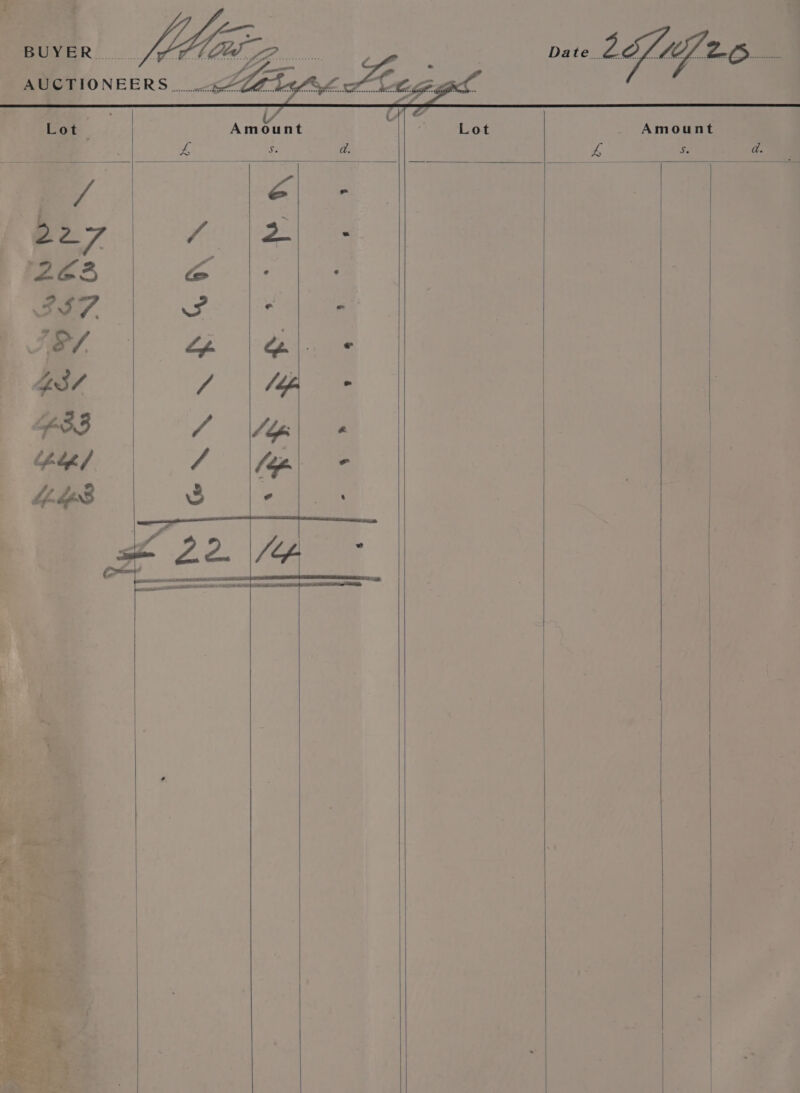 BUYER Date
AUCTIONEERS
Lot Amount Lot Amount
£ s. d. £ s. d.
1 6 -
227 1 2 -
263 6 - -
357 3 - -
381 4 4 -
431 1 14 -
433 1 14 -
441 1 14 -
443 3 - -
£ 22 14 -